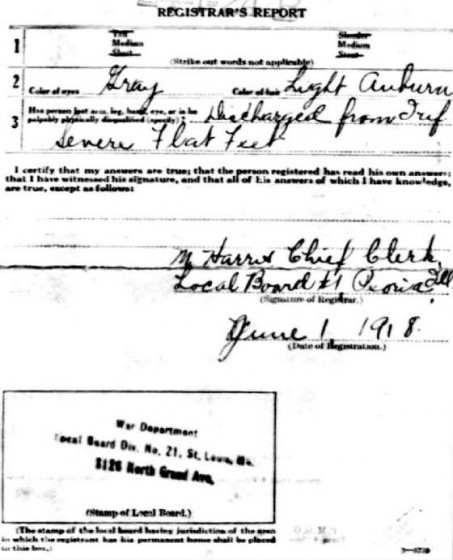 REGISTRAR'S REPORT
1 Tall Medium Short Slender Medium Stout
(Strike out words not applicable)
2 Color of eyes Gray Color of hair Light Auburn
3 Has person lost arm, leg, hand, eye, or is he
palpably physically disqualified (specify)? Discharged from
Severe Flat Feet
I certify that my answers are true; that the person registered has read his own answers;
that I have witnessed his signature, and that all of his answers of which I have knowledge,
are true, except as follows:
M Harris Chief Clerk,
Local Board #1 Peoria, Ill.
(Signature of Registrar.)
June 1 1918.
(Date of Registration.)
War Department
Local Board Div. No. 21, St. Louis, Mo.
5126 North Grand Ave.
(Stamp of Local Board.)
(The stamp of the local board having jurisdiction of the area
in which the registrant has his permanent home shall be placed
in this box.)